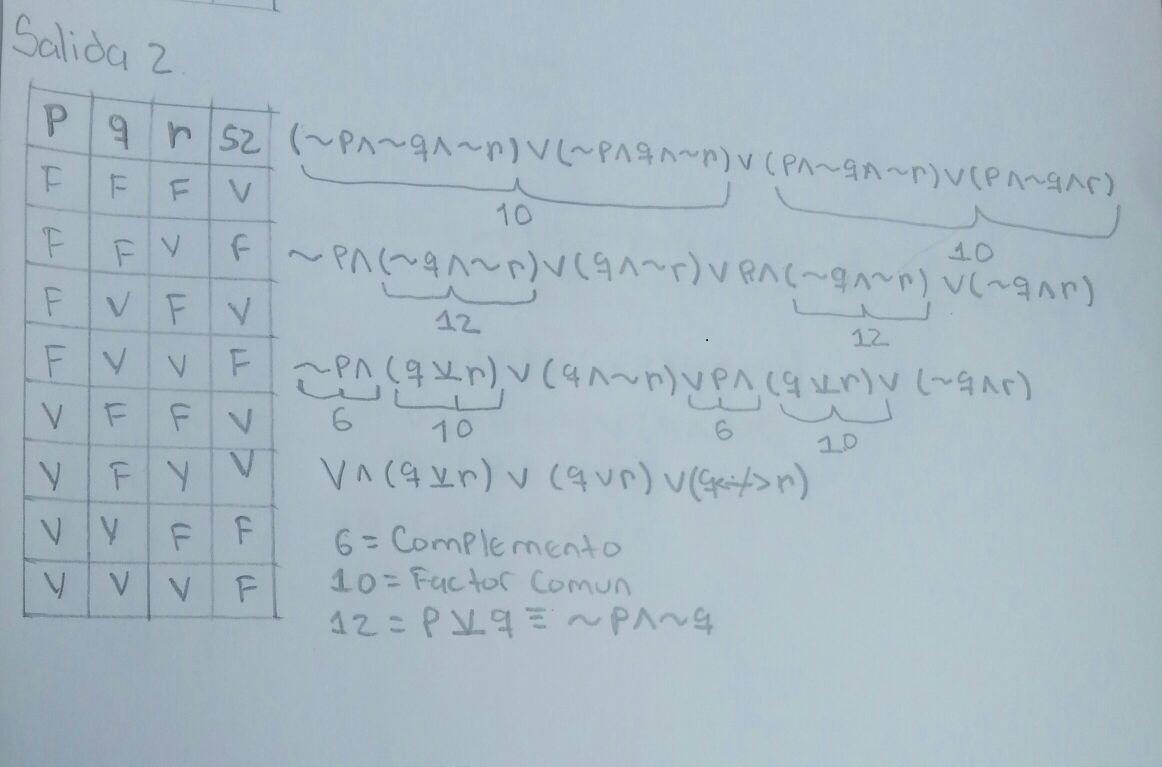 Salida 2.
p q r S2
F F F V
F F V F
F V F V
F V V F
V F F V
V F V V
V V F F
V V V F
(~p∧~q∧~r)∨(~p∧q∧~r)∨(p∧~q∧~r)∨(p∧~q∧r)
10 10
~p∧(~q∧~r)∨(q∧~r)∨p∧(~q∧~r)∨(~q∧r)
12 12
~p∧(q⊻r)∨(q∧~r)∨p∧(q⊻r)∨(~q∧r)
6 10 6 10
V∧(q⊻r)∨(q∨r)∨(q<-/->r)
6 = Complemento
10 = Factor Comun
12 = p⊻q ≡ ~p∧~q